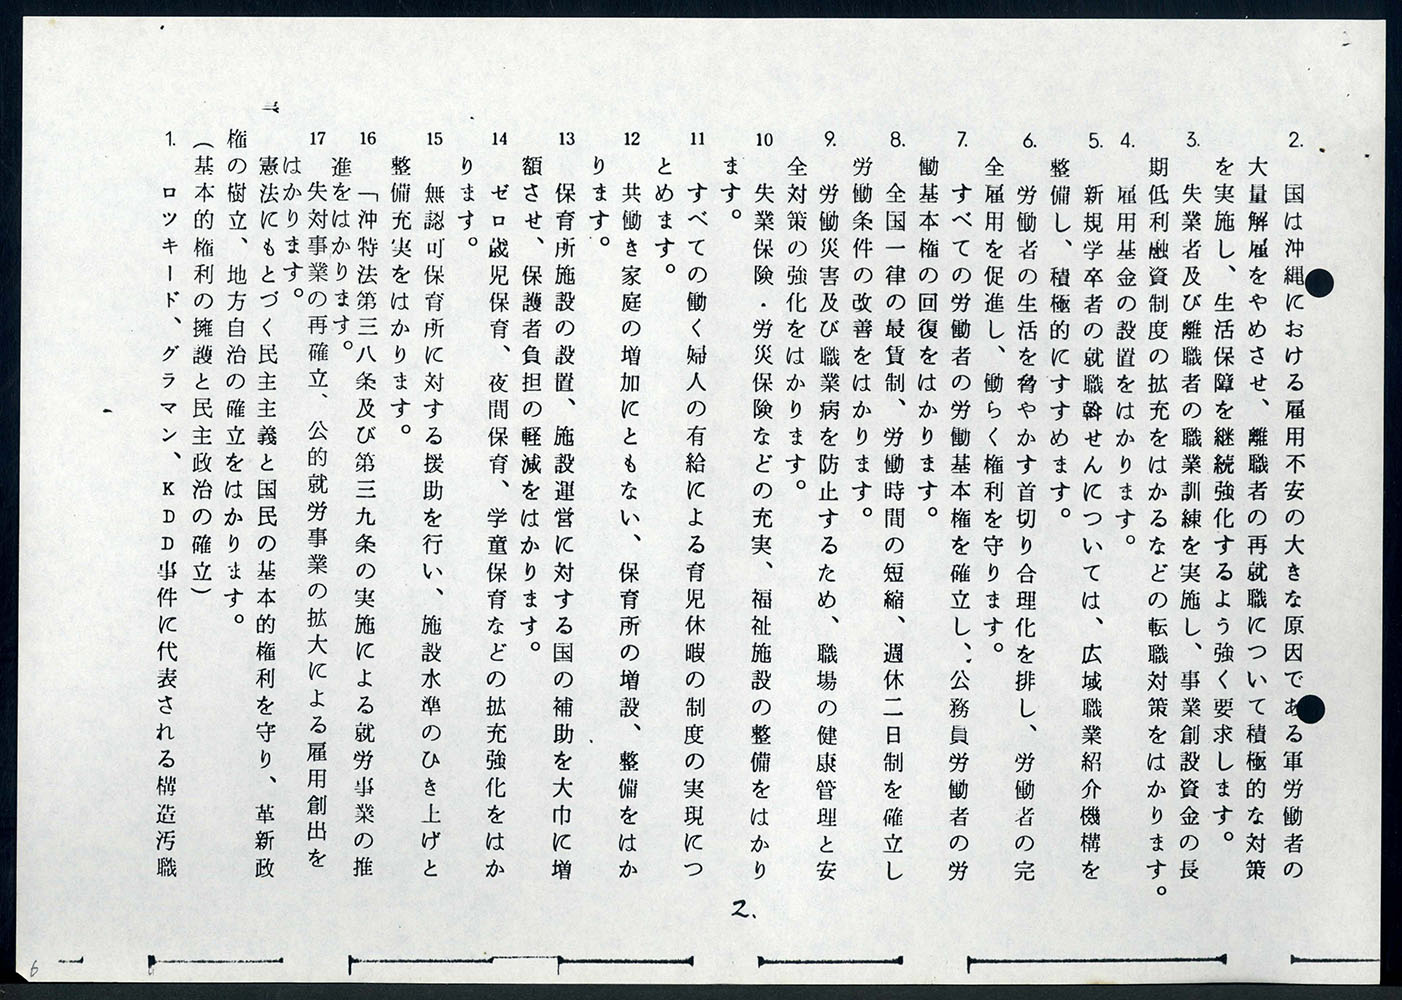 2. 国は沖縄における雇用不安の大きな原因である軍労働者の
大量解雇をやめさせ、離職者の再就職について積極的な対策
を実施し、生活保障を継続強化するよう強く要求します。
3. 失業者及び離職者の職業訓練を実施し、事業創設資金の長
期低利融資制度の拡充をはかるなどの転職対策をはかります。
4. 雇用基金の設置をはかります。
5. 新規学卒者の就職斡せんについては、広域職業紹介機構を
整備し、積極的にすすめます。
6. 労働者の生活を脅やかす首切り合理化を排し、労働者の完
全雇用を促進し、働らく権利を守ります。
7. すべての労働者の労働基本権を確立し、公務員労働者の労
働基本権の回復をはかります。
8. 全国一律の最賃制、労働時間の短縮、週休二日制を確立し
労働条件の改善をはかります。
9. 労働災害及び職業病を防止するため、職場の健康管理と安
全対策の強化をはかります。
10 失業保険・労災保険などの充実、福祉施設の整備をはかり
ます。
11 すべての働く婦人の有給による育児休暇の制度の実現につ
とめます。
12 共働き家庭の増加にともない、保育所の増設、整備をはか
ります。
13 保育所施設の設置、施設運営に対する国の補助を大巾に増
額させ、保護者負担の軽減をはかります。
14 ゼロ歳児保育、夜間保育、学童保育などの拡充強化をはか
ります。
15 無認可保育所に対する援助を行い、施設水準のひき上げと
整備充実をはかります。
16 「沖特法第三八条及び第三九条の実施による就労事業の推
進をはかります。
17 失対事業の再確立、公的就労事業の拡大による雇用創出を
はかります。
憲法にもとづく民主主義と国民の基本的権利を守り、革新政
権の樹立、地方自治の確立をはかります。
(基本的権利の擁護と民主政治の確立)
1. ロツキード、グラマン、KDD事件に代表される構造汚職
2.
6